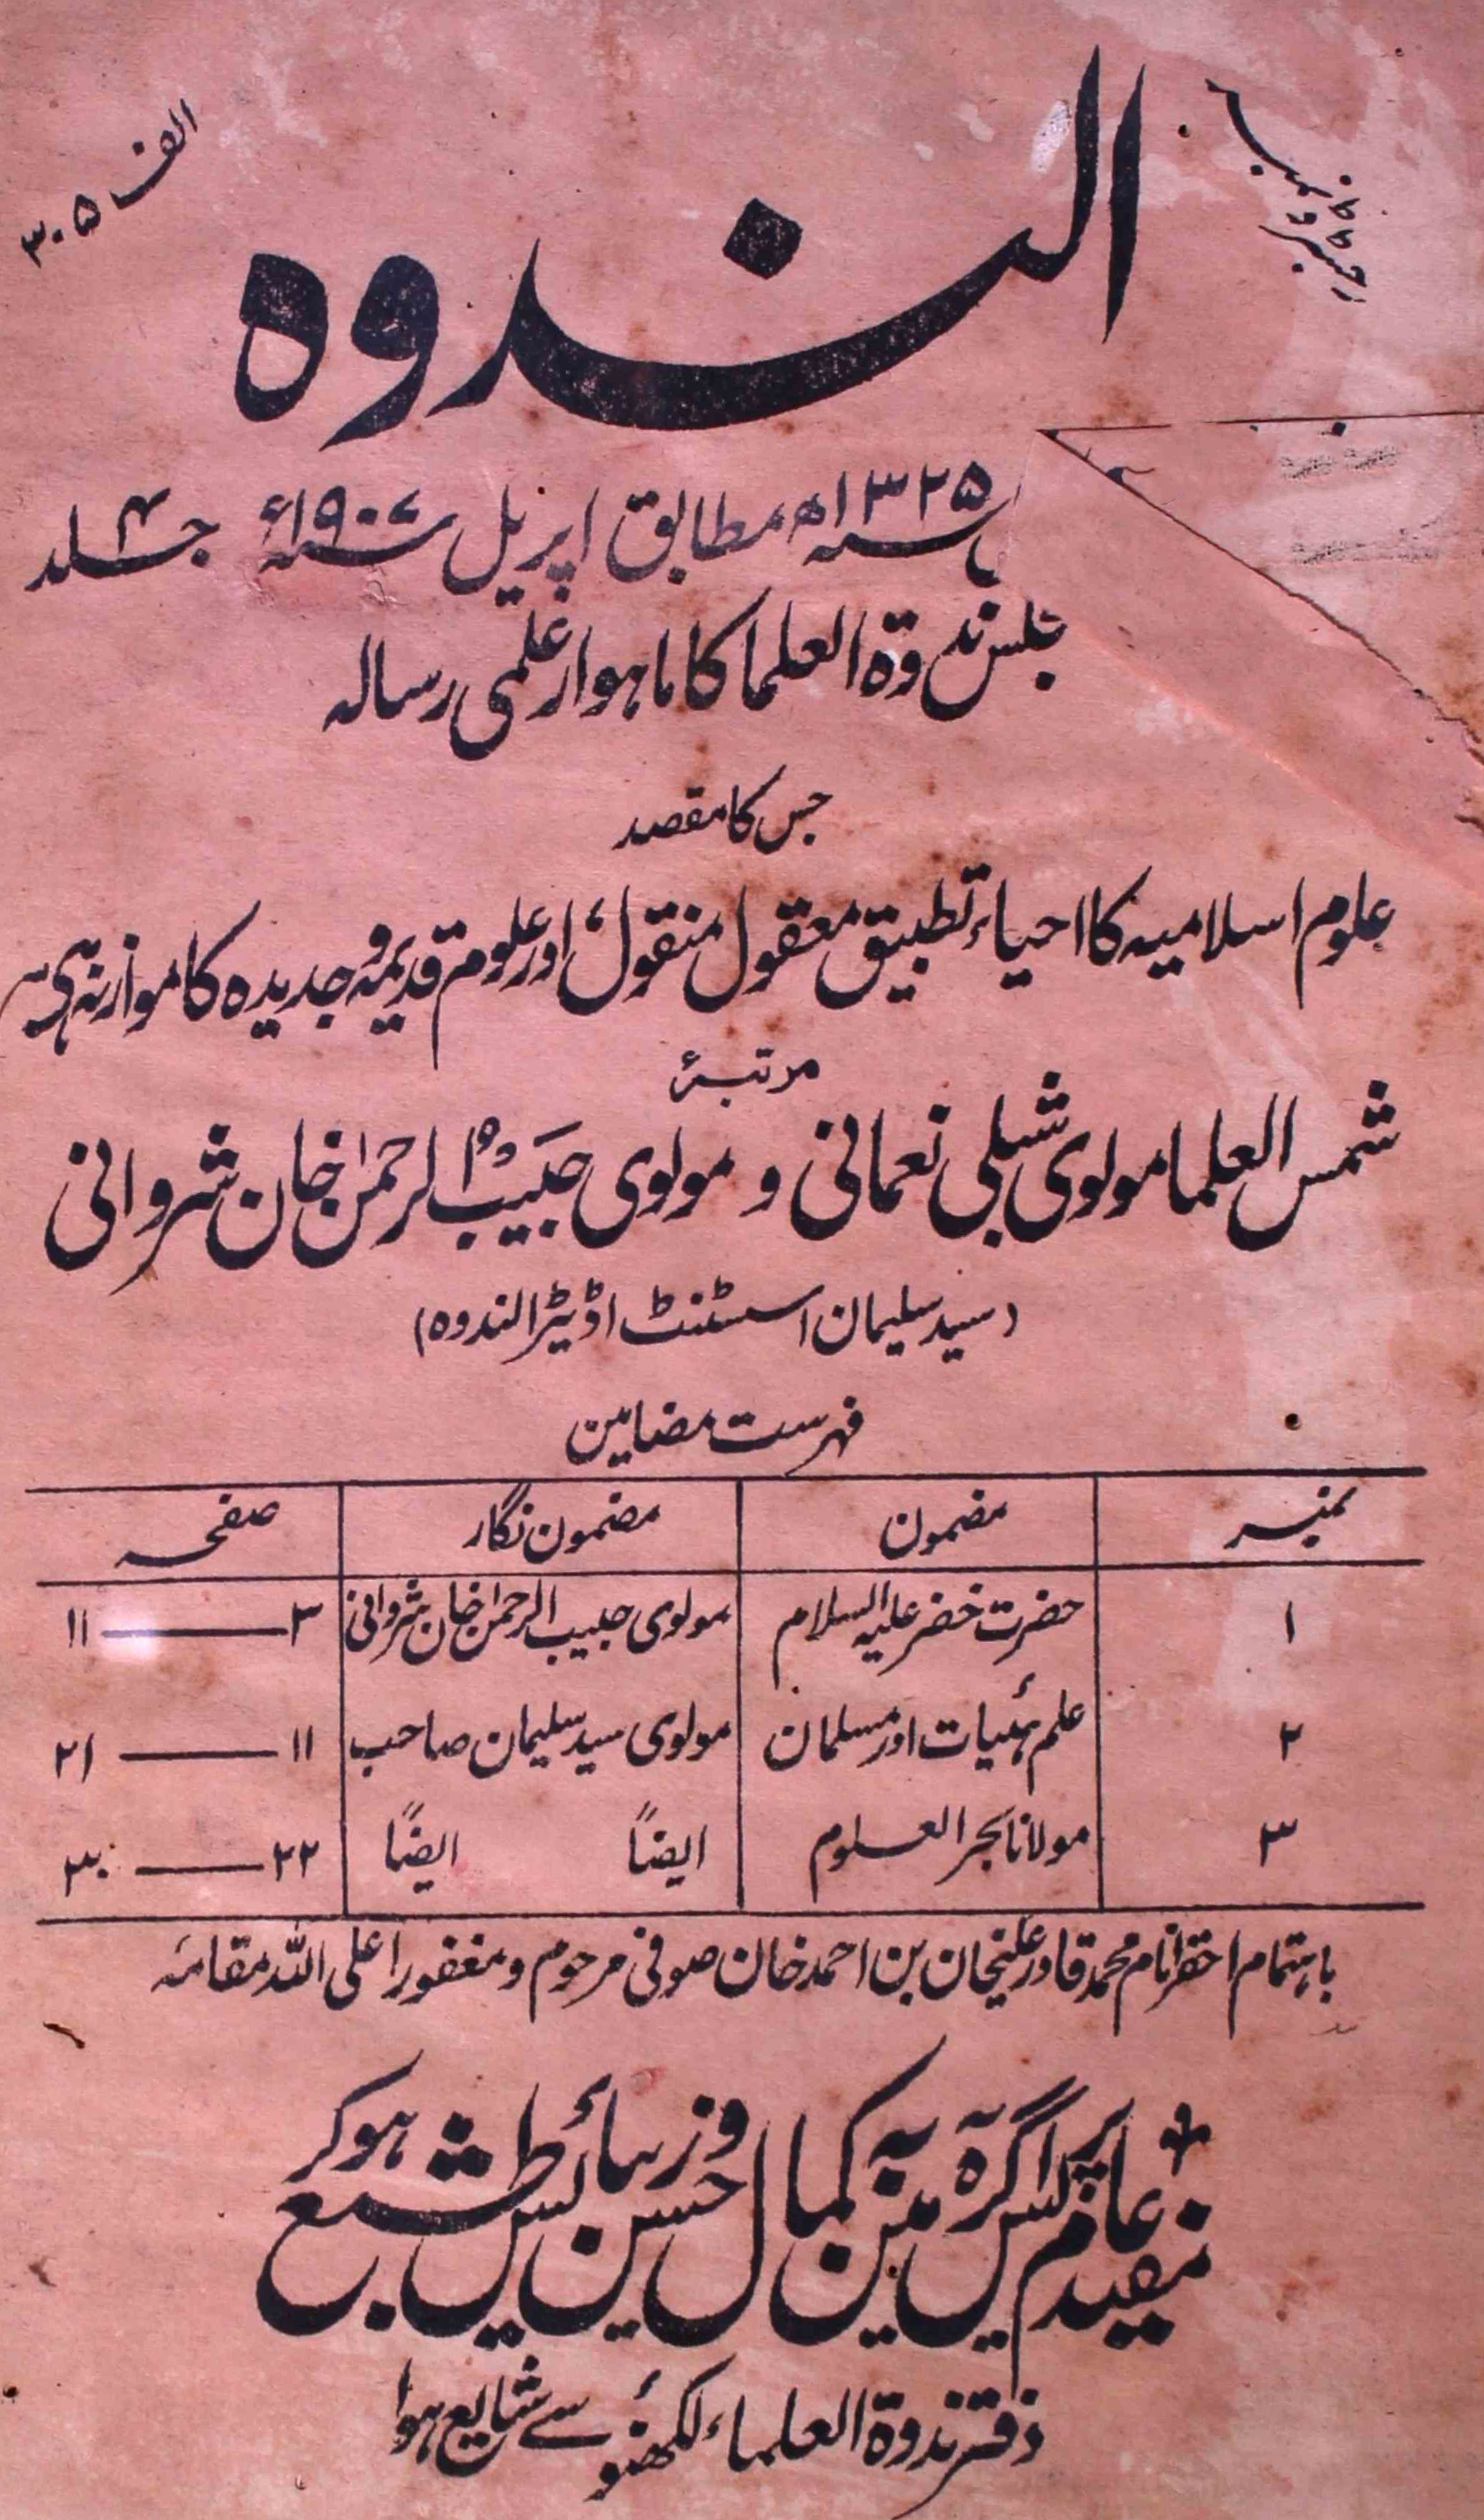 الف ۳۰۵
الندوہ
سنہ ۱۳۲۵ھ مطابق اپریل سنہ ۱۹۰۷ء جلد ۴
ندوۃ العلما کا ماہوار علمی رسالہ
جس کا مقصد
علوم اسلامیہ کا احیاء تطبیق معقول منقول، اور علوم قدیمہ و جدیدہ کا موازنہ ہی
مرتبۂ
شمس العلما مولوی شبلی نعمانی و مولوی حبیب الرحمٰن خان شروانی
(سید سلیمان اسسٹنٹ اڈیٹر الندوہ)
فہرست مضامین
نمبر مضمون مضمون نگار صفحہ
۱ حضرت خضر علیہ السلام مولوی حبیب الرحمٰن خان شروانی ۳ — ۱۱
۲ علم ہئیات اور مسلمان مولوی سید سلیمان صاحب ۱۱ — ۲۱
۳ مولانا بحر العلوم ایضاً ایضاً ۲۲ — ۳۰
باہتمام احقر انام محمد قادر علیخان بن احمد خان صوفی مرحوم و مغفور اعلی اللہ مقامہ
مفید عام پریس آگرہ میں بہ کمال حسن و زیبائش طبع ہوکر
دفتر ندوۃ العلماء لکھنؤ سے شایع ہوا